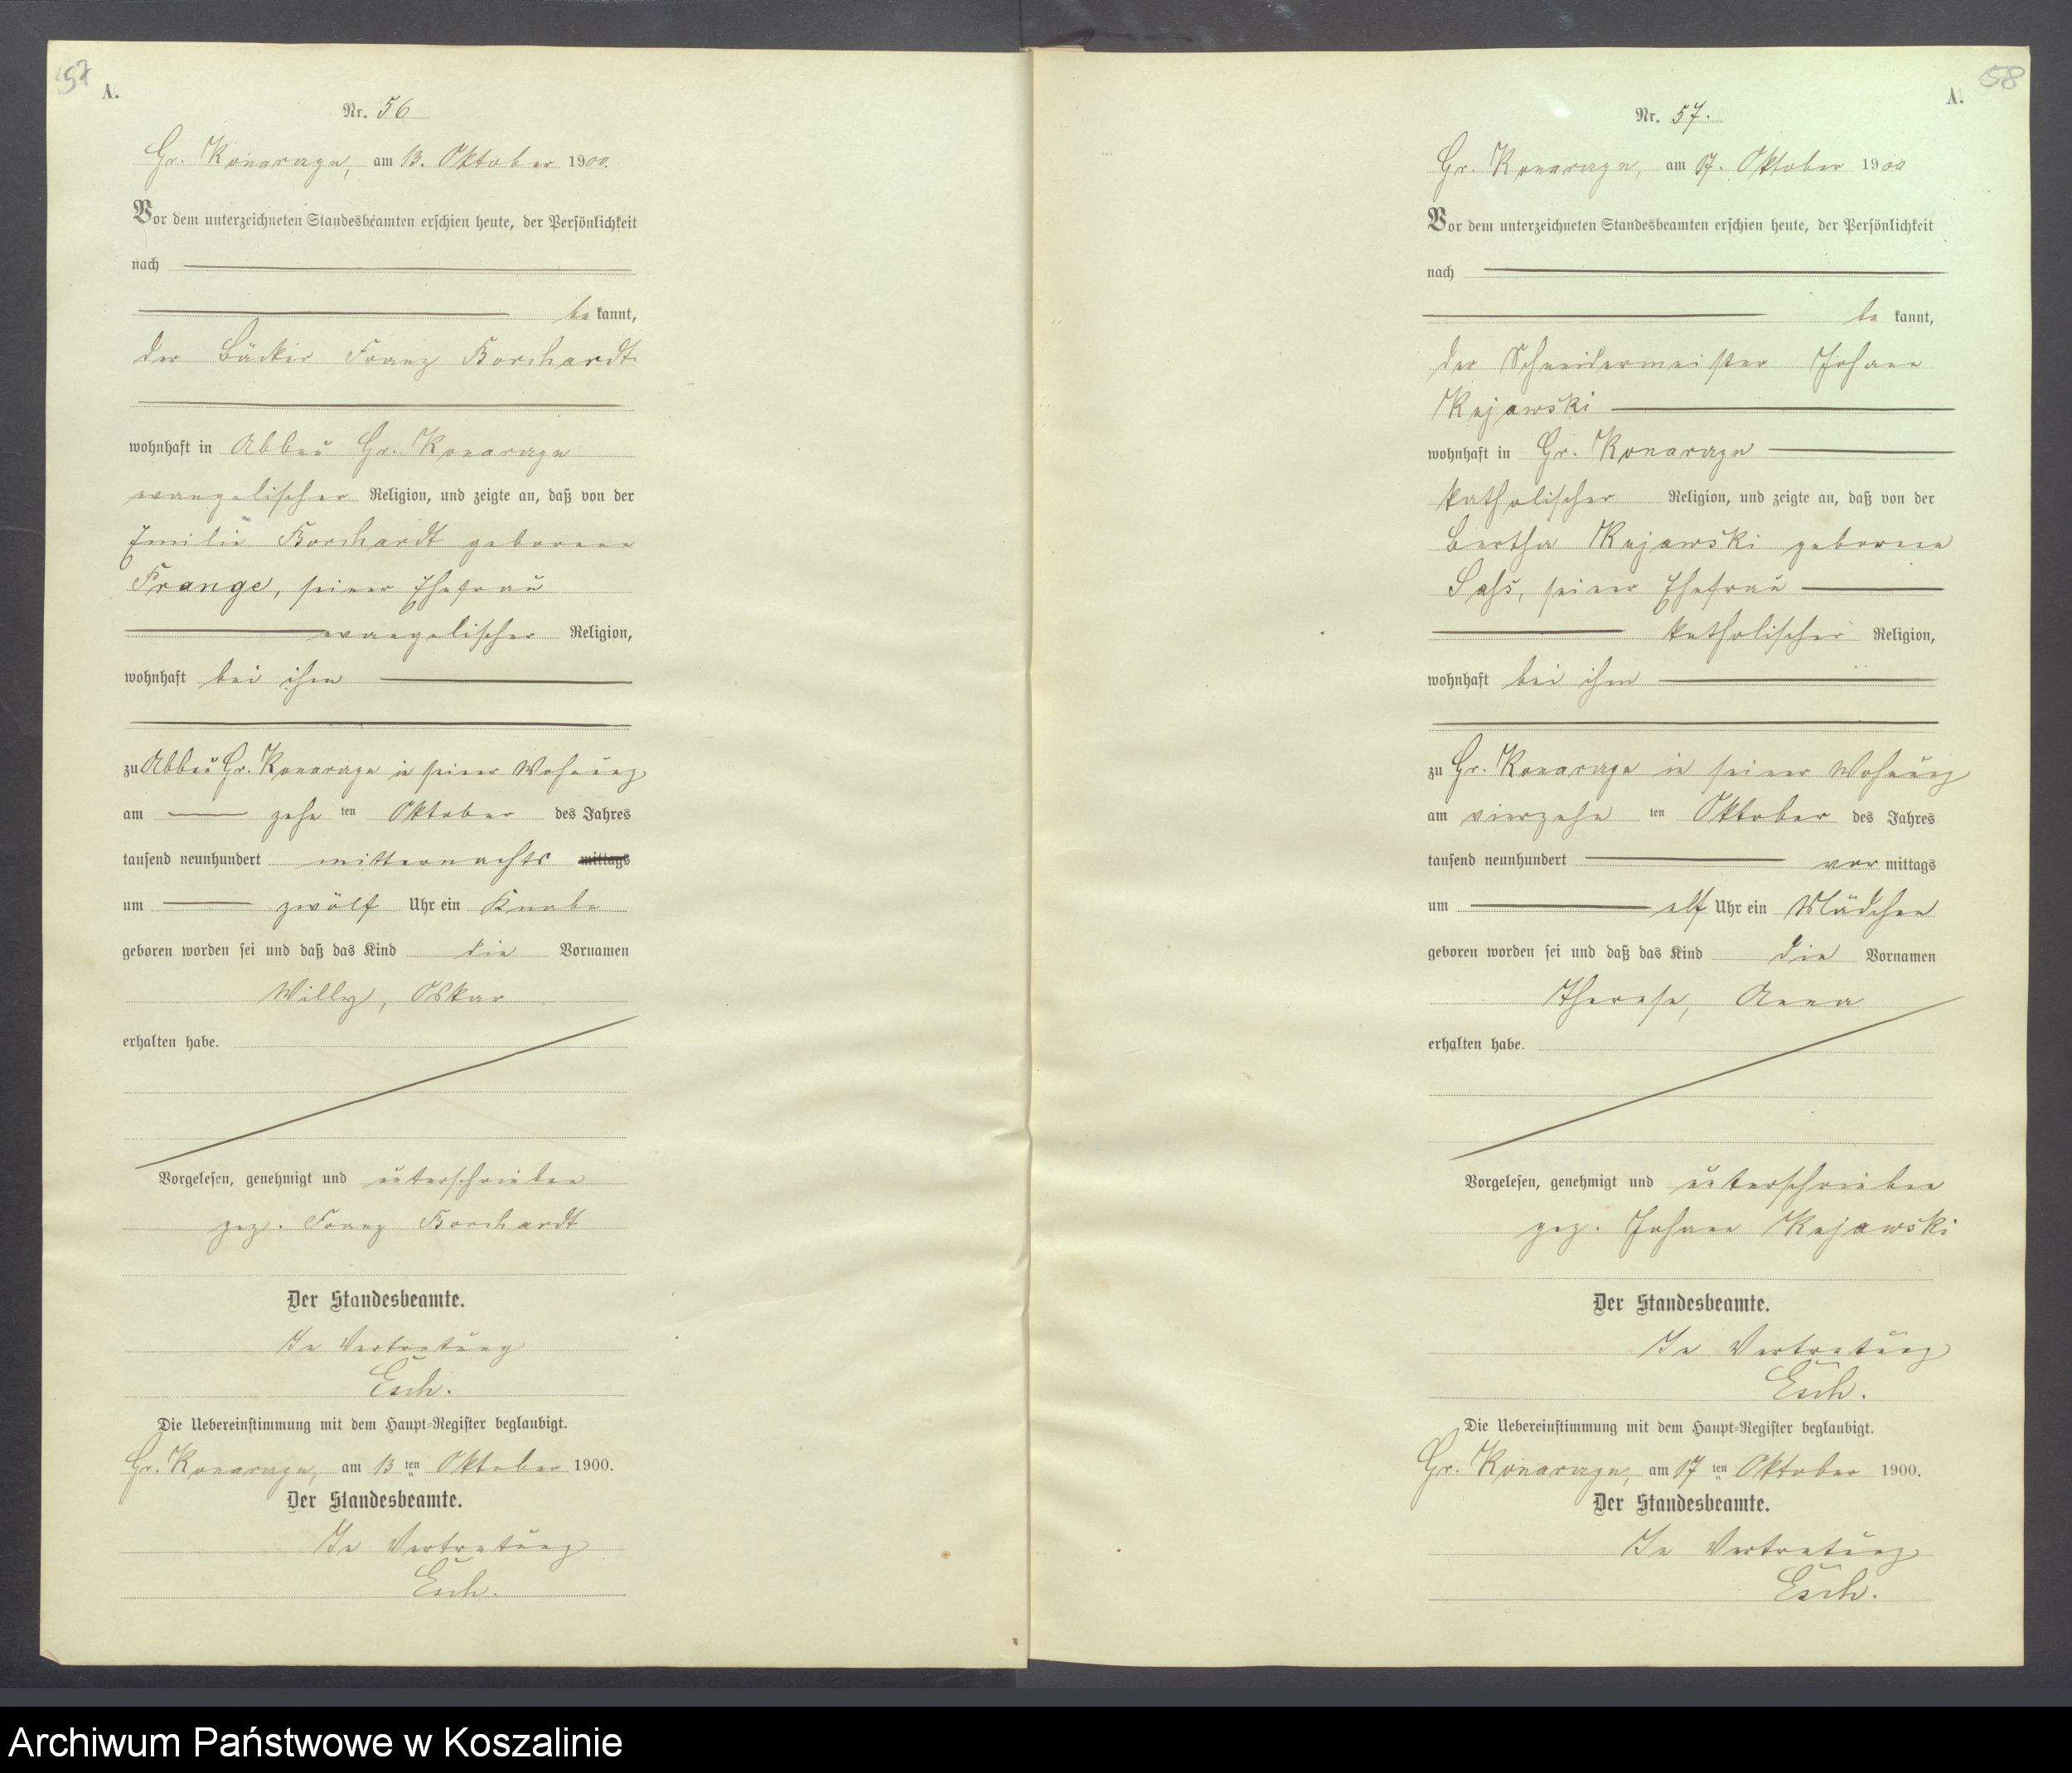 57
A.
Nr. 56
Gr. Konarzyn, am 13. Oktober 1900.
Vor dem unterzeichneten Standesbeamten erschien heute, der Persönlichkeit
nach
be kannt,
der Bäcker Franz Borchardt
wohnhaft in Abbau Gr. Konarzyn
evangelischer Religion, und zeigte an, daß von der
Emilie Borchardt geborenen
Prange, seiner Ehefrau
evangelischer Religion,
wohnhaft bei ihm
zu Abbau Gr. Konarzyn in seiner Wohnung
am zehn ten Oktober des Jahres
tausend neunhundert mitternachts mittags
um zwölf Uhr ein Knabe
geboren worden sei und daß das Kind die Vornamen
Willy, Oskar
erhalten habe.
Vorgelesen, genehmigt und unterschrieben
gez. Franz Borchardt
Der Standesbeamte.
In Vertretung
Esch.
Die Uebereinstimmung mit dem Haupt-Register beglaubigt.
Gr. Konarzyn, am 13 ten Oktober 1900.
Der Standesbeamte.
In Vertretung
Esch.
58
A.
Nr. 57.
Gr. Konarzyn, am 17. Oktober 1900
Vor dem unterzeichneten Standesbeamten erschien heute, der Persönlichkeit
nach
be kannt,
der Schneidermeister Johann
Kujawski
wohnhaft in Gr. Konarzyn
katholischer Religion, und zeigte an, daß von der
Bertha Kujawski geborene
Sass, seiner Ehefrau
katholischer Religion,
wohnhaft bei ihm
zu Gr. Konarzyn in seiner Wohnung
am vierzehn ten Oktober des Jahres
tausend neunhundert vor mittags
um elf Uhr ein Mädchen
geboren worden sei und daß das Kind die Vornamen
Therese, Anna
erhalten habe.
Vorgelesen, genehmigt und unterschrieben
gez. Johann Kujawski
Der Standesbeamte.
In Vertretung
Esch.
Die Uebereinstimmung mit dem Haupt-Register beglaubigt.
Gr. Konarzyn, am 17 ten Oktober 1900.
Der Standesbeamte.
In Vertretung
Esch.
Archiwum Państwowe w Koszalinie